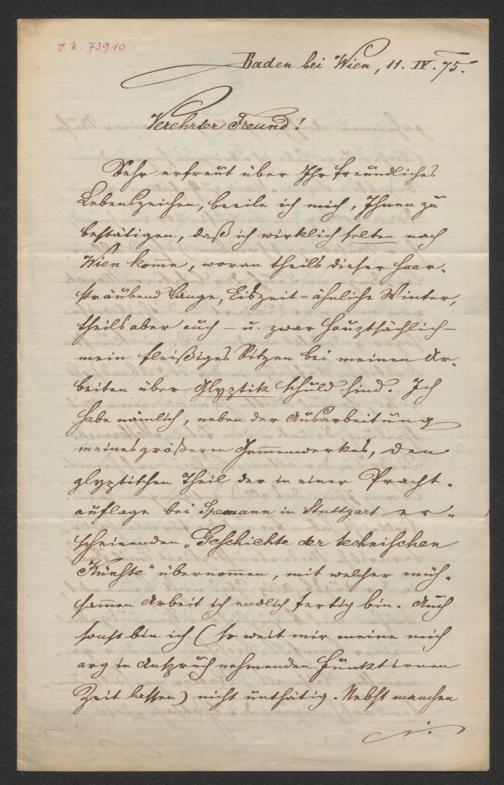 J. N. 73910
Baden bei Wien, 11. IV. 75.
Verehrter Freund!
Sehr erfreut über Ihr freundliches
Lebenszeichen, beeile ich mich, Ihnen zu
bestätigen, daß ich wirklich selten nach
Wien komme, woran theils dieser haar-
sträubend lange, Eiszeit-ähnliche Winter,
theils aber auch – u. zwar hauptsächlich –
mein fleißiges Sitzen bei meinen Ar-
beiten über Glyptik schuld sind. Ich
habe nämlich, neben der Ausarbeitung
meines größeren Gemmenwerkes, den
glyptischen Theil der in einer Pracht-
auflage bei Spemann in Stuttgart er-
scheinenden „Geschichte der technischen
Künste“ übernommen, mit welcher müh-
samen Arbeit ich endlich fertig bin. Auch
sonst bin ich (so weit mir meine mich
arg in Anspruch nehmenden Funktionen
Zeit lassen) nicht unthätig. Nebst manchen